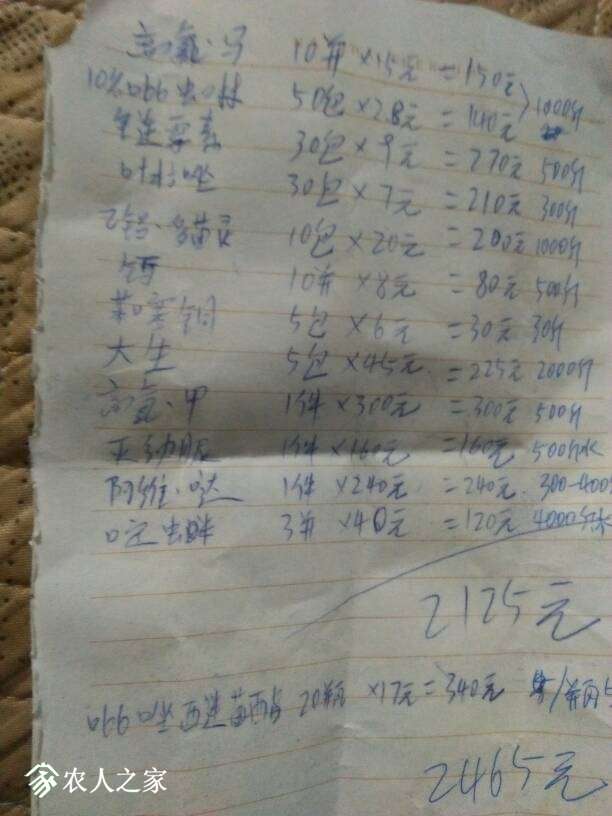 高氯·马 10并×15元=150元 1000斤
10%吡虫啉 50包×2.8元=140元
30包×9元=270元 500斤
30包×7元=210元 300斤
乙铝·多菌灵 10包×20元=200元 1000斤
10并×8元=80元 500斤
5包×6元=30元 30斤
大生 5包×45元=225元 2000斤
高氯·甲 1件×300元=300元 500斤
1件×160元=160元 500斤水
阿维·哒 1件×240元=240元 300-400
啶虫脒 3并×40元=120元 4000斤水
2125元
吡唑醚菌酯 20瓶×17元=340元
2465元
农人之家